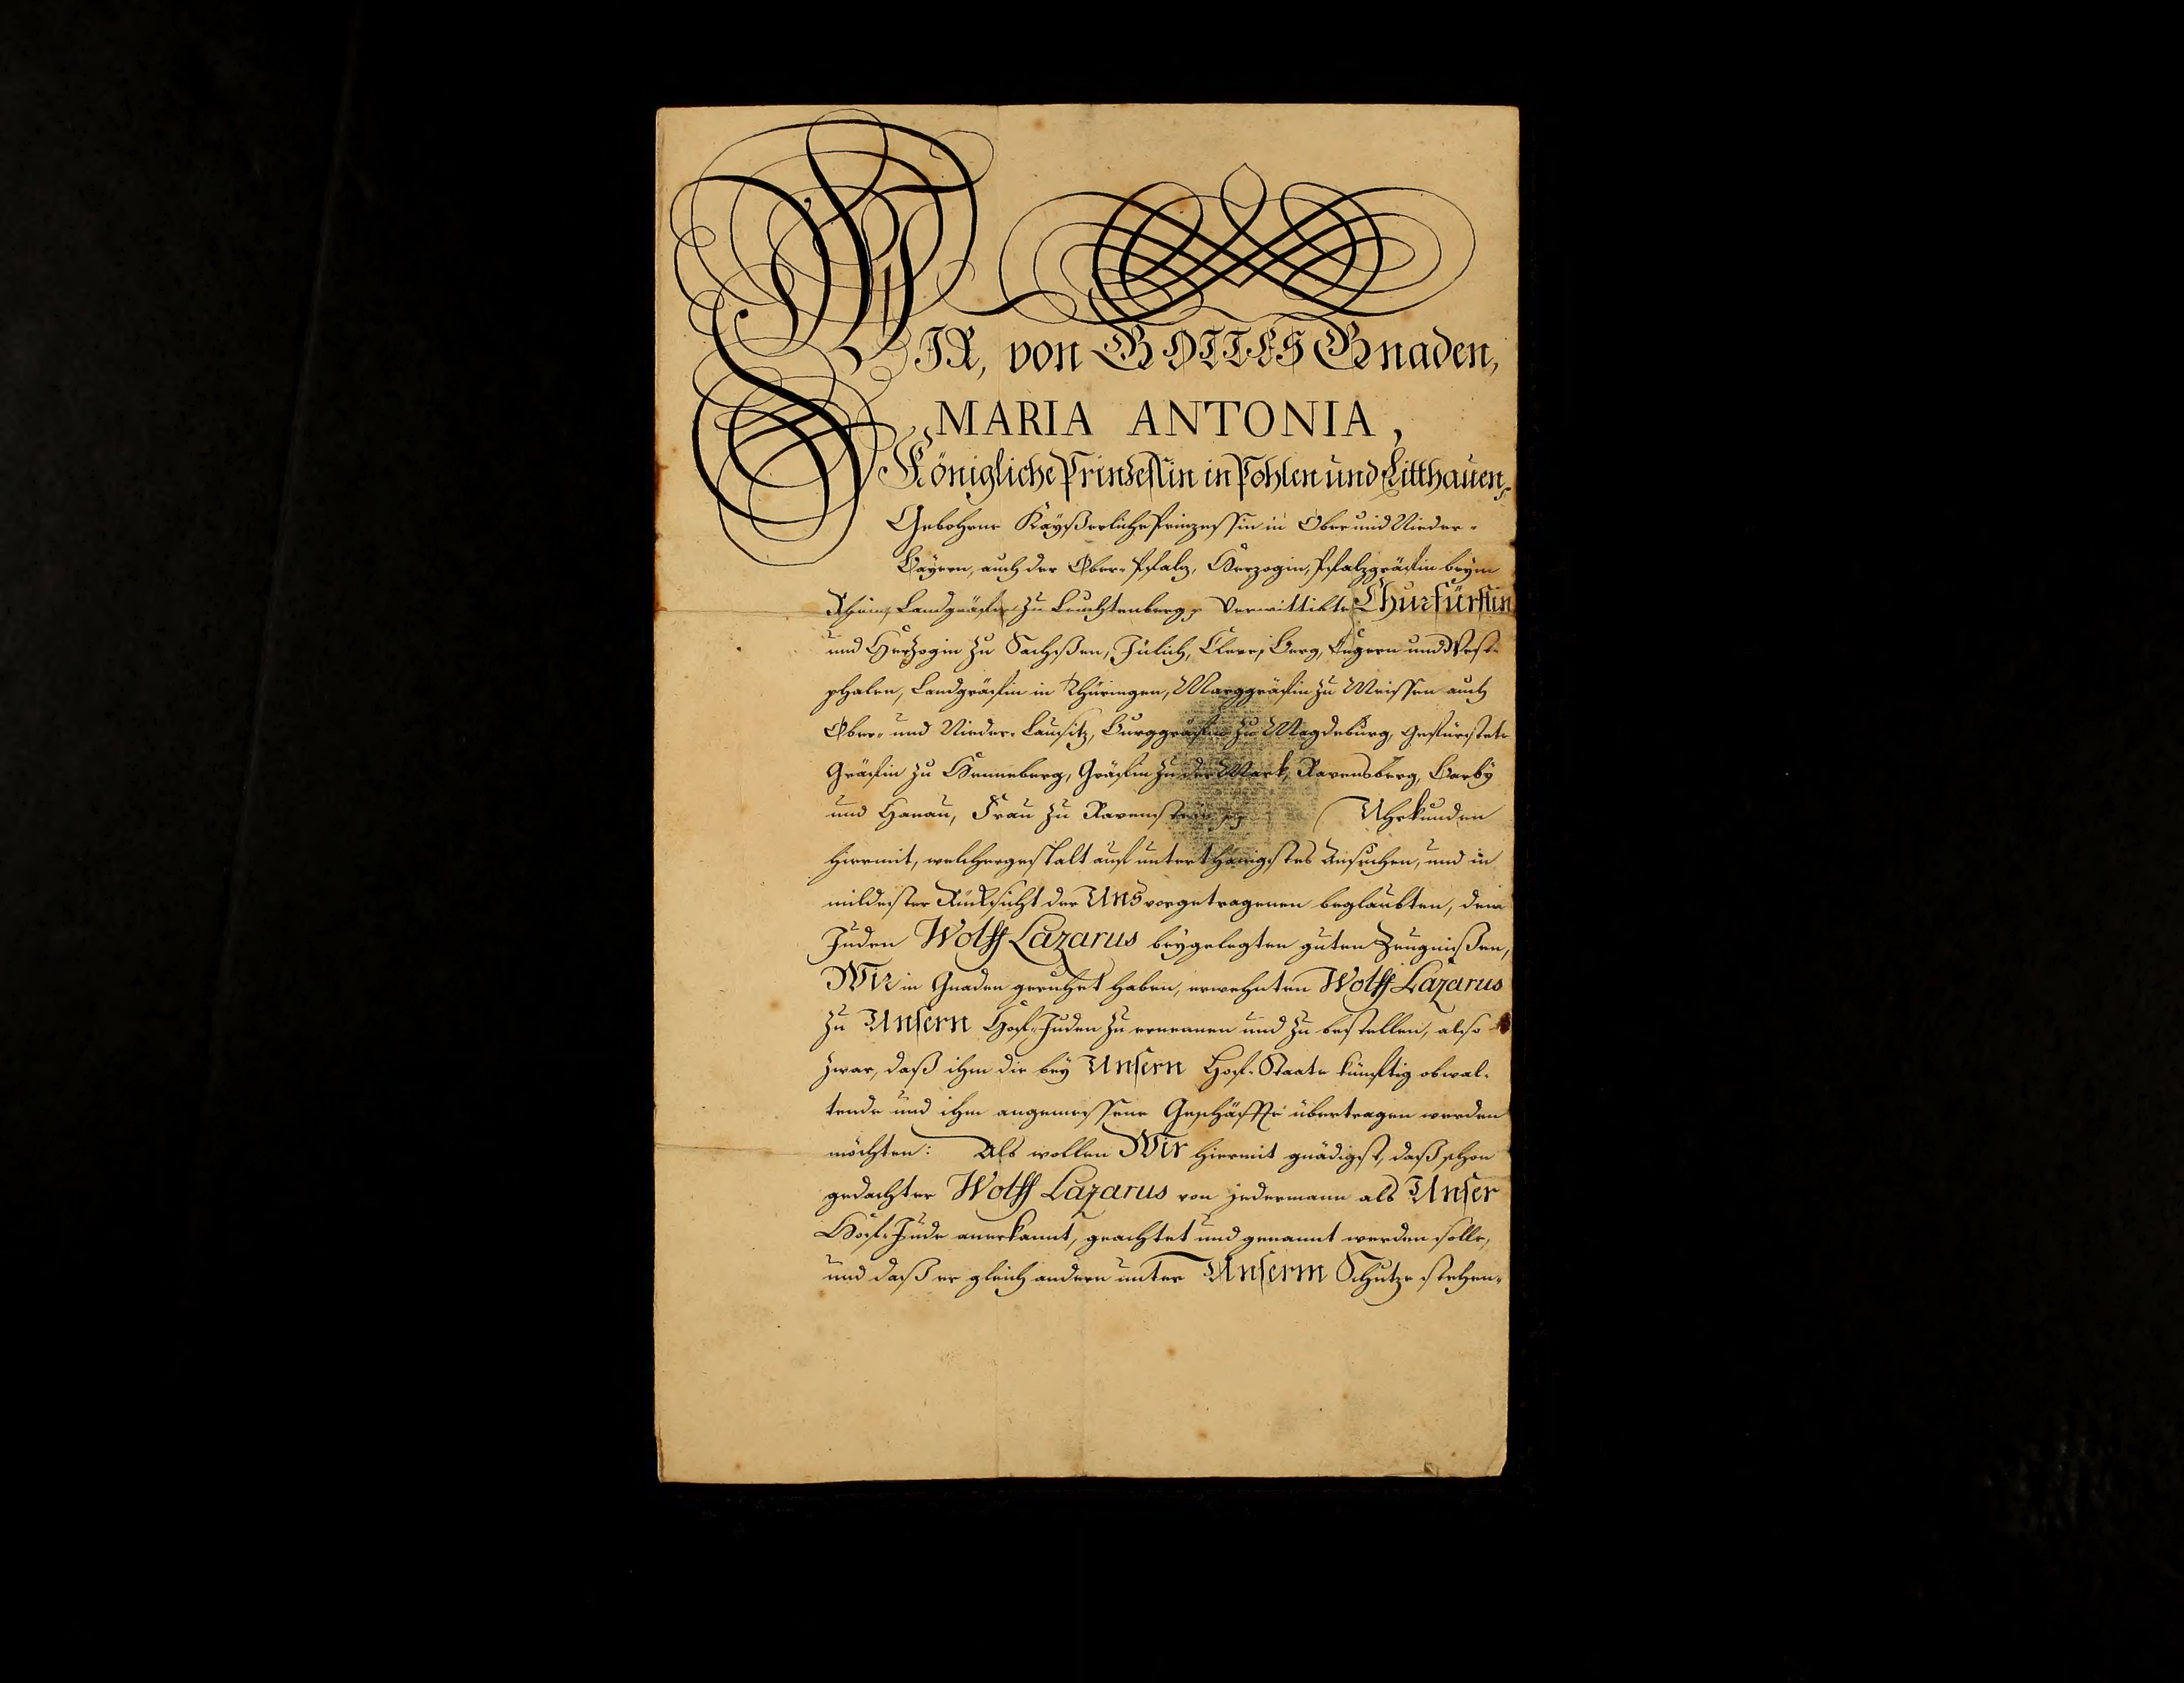 WIR, von GOTTES Gnaden,
MARIA ANTONIA,
Königliche Prinzessin in Pohlen und Litthauen,
Gebohrne Kaÿßerliche Prinzessin in Ober und Nieder-
Baÿern, auch der Ober-Pfalz, Herzogin, Pfalzgräfin beÿm
Rhein, Landgräfin zu Leuchtenberg, Verwittibte Churfürstin
und Herzogin zu Sachßen, Jülich, Cleve, Berg, Engern und West-
phalen, Landgräfin in Thüringen, Marggräfin zu Meissen auch
Ober- und Nieder-Lausitz, Burggräfin zu Magdeburg, Gefürstete
Gräfin zu Henneberg, Gräfin zu der Mark, Ravensberg, Barbÿ
und Hanau, Frau zu Ravenstein Uhrkunden
hiermit, welchergestalt auf unterthänigstes Ansuchen, und in
mildester Rücksicht der Uns vorgetragenen beglaubten, dem
Juden Wolff Lazarus beÿgelegten guten Zeugnißen,
Wir in Gnaden geruhet haben, erwehnten Wolff Lazarus
zu Unsern Hof-Juden zu ernennen und zu bestellen, also
zwar, daß ihm die beÿ Unsern Hof-Staate künftig obwal-
tende und ihm angemessene Geschäffte übertragen werden
möchten: Als wollen Wir hiermit gnädigst, daß schon
gedachter Wolff Lazarus von jedermann als Unser
Hof-Jude anerkannt, geachtet und genannt werden solle,
und daß er gleich andern unter Unserm Schutze stehen-